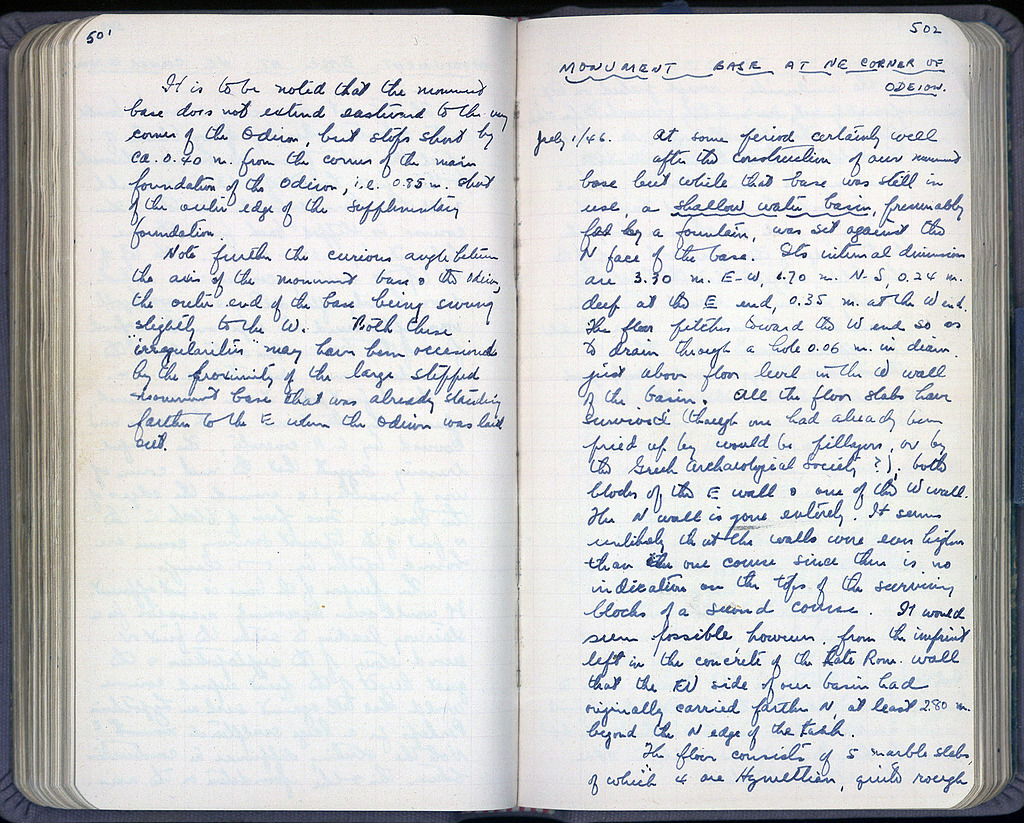 501
It is to be noted that the monument
base does not extend eastward to the very
corner of the Odeion, but stops short by
ca. 0.40 m. from the corner of the main
foundation of the Odeion, i.e. 0.85 m. short
of the outer edge of the supplementary
foundation.
Note further the curious angle between
the axis of the monument base & the Odeion,
the outer end of the base being swung
slightly to the W. Both these
"irregularities" may have been occasioned
by the proximity of the large stepped
monument base that was already standing
farther to the E when the Odeion was laid
out.
502
MONUMENT BASE AT NE CORNER OF
ODEION.
July 1/46. At some period certainly well
after the construction of our monument
base but while that base was still in
use, a shallow water basin, presumably
fed by a fountain, was set against the
N face of the base. Its internal dimensions
are 3.30 m. E-W, 1.70 m. N-S, 0.24 m.
deep at the E end, 0.35 m. at the W end.
The floor pitches toward the W end so as
to drain through a hole 0.06 m. in diam.
just above floor level in the W wall
of the basin. All the floor slabs have
survived though one had already been
pried up by would be pillagers, or by
the Greek Archaeological Society?); both
blocks of the E wall & one of the W wall.
The N wall is gone entirely. It seems
unlikely that the walls were ever higher
than the one course since there is no
indication on the tops of the surviving
blocks of a second course. It would
seem possible however, from the imprint
left in the concrete of the Late Rom. wall
that the W side of our basin had
originally carried farther N, at least 2.80 m.
beyond the N edge of the tank.
The floor consists of 5 marble slabs,
of which 4 are Hymettian, quite rough